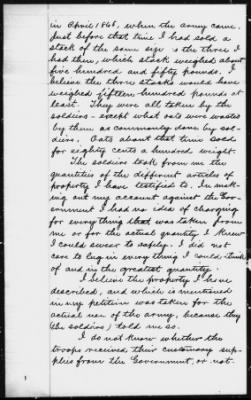 in April 1865, when the army came.
Just before that time I had sold a
stack of the same size as the three I
had then, which stack weighed about
five hundred and fifty pounds. I
believe the three stacks would have
weighed fifteen hundred pounds at
least. They were all taken by the
soldiers - except what oats were wasted
by them as commonly done by sol-
diers. Oats about that time sold
for eighty cents a hundred weight.
The soldiers took from me the
quantities of the different articles of
property I have testified to. In mak-
ing out my account against the Gov-
ernment I had no idea of charging
for everything that was taken from
me or for the actual quantity I knew
I could swear to safely. I did not
care to lug in every thing I could think
of and in the greatest quantity.
I believe the property I have
described, and which is mentioned
in my petition was taken for the
actual use of the army, because they
(the soldiers) told me so.
I do not know whether the
troops received their customary sup-
plies from the Government, or not.